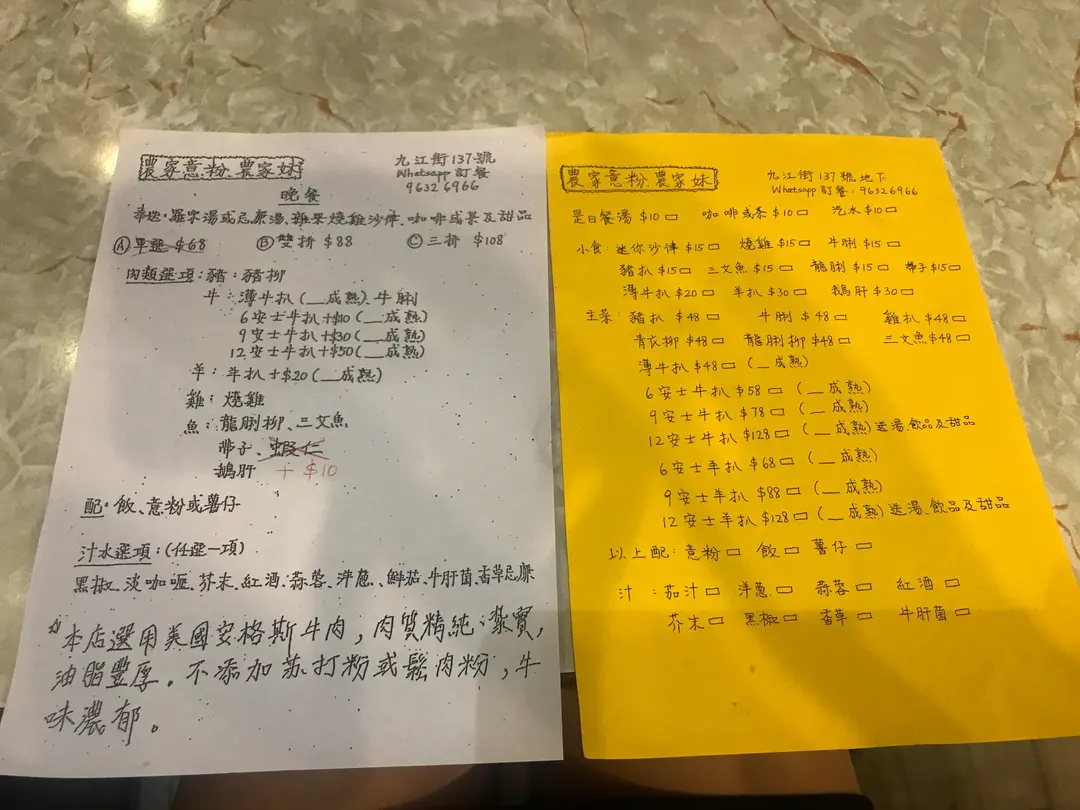 農家意粉、農家妹
九江街137號
Whatsapp 訂餐
9632 6966
晚餐
奉送：羅宋湯或忌廉湯、雜果燒雞沙律、咖啡或茶及甜品
Ⓐ 單選 $68 Ⓑ 雙拼 $88 Ⓒ 三拼 $108
肉類選項：豬：豬柳
牛：薄牛扒(__成熟)、牛脷
6安士牛扒+$10(__成熟)
9安士牛扒+$30(__成熟)
12安士牛扒+$50(__成熟)
羊：羊扒+$20(__成熟)
雞：燒雞
魚：龍脷柳、三文魚
帶子、蝦仁
鵝肝 + $10
配：飯、意粉或薯仔
汁水選項：(任選一項)
黑椒、淡咖喱、芥末、紅酒、蒜蓉、洋蔥、鮮茄、牛肝菌、香草忌廉
本店選用美國安格斯牛肉，肉質精純、紮實，
油脂豐厚。不添加苏打粉或鬆肉粉，牛
味濃郁。
農家意粉、農家妹
九江街137號地下
Whatsapp 訂餐：9632 6966
是日餐湯 $10 ▭ 咖啡或茶 $10 ▭ 汽水 $10 ▭
小食：迷你沙律 $15 ▭ 燒雞 $15 ▭ 牛脷 $15 ▭
豬扒 $15 ▭ 三文魚 $15 ▭ 龍脷 $15 ▭ 帶子 $15 ▭
薄牛扒 $20 ▭ 羊扒 $30 ▭ 鵝肝 $30 ▭
主菜：豬扒 $48 ▭ 牛脷 $48 ▭ 雞扒 $48 ▭
青衣柳 $48 ▭ 龍脷柳 $48 ▭ 三文魚 $48 ▭
薄牛扒 $48 ▭ (__成熟)
6安士牛扒 $58 ▭ (__成熟)
9安士牛扒 $78 ▭ (__成熟)
12安士牛扒 $128 ▭ (__成熟)送湯、飲品及甜品
6安士羊扒 $68 ▭ (__成熟)
9安士羊扒 $88 ▭ (__成熟)
12安士羊扒 $128 ▭ (__成熟)送湯、飲品及甜品
以上配：意粉 ▭ 飯 ▭ 薯仔 ▭
汁：茄汁 ▭ 洋蔥 ▭ 蒜蓉 ▭ 紅酒 ▭
芥末 ▭ 黑椒 ▭ 香草 ▭ 牛肝菌 ▭